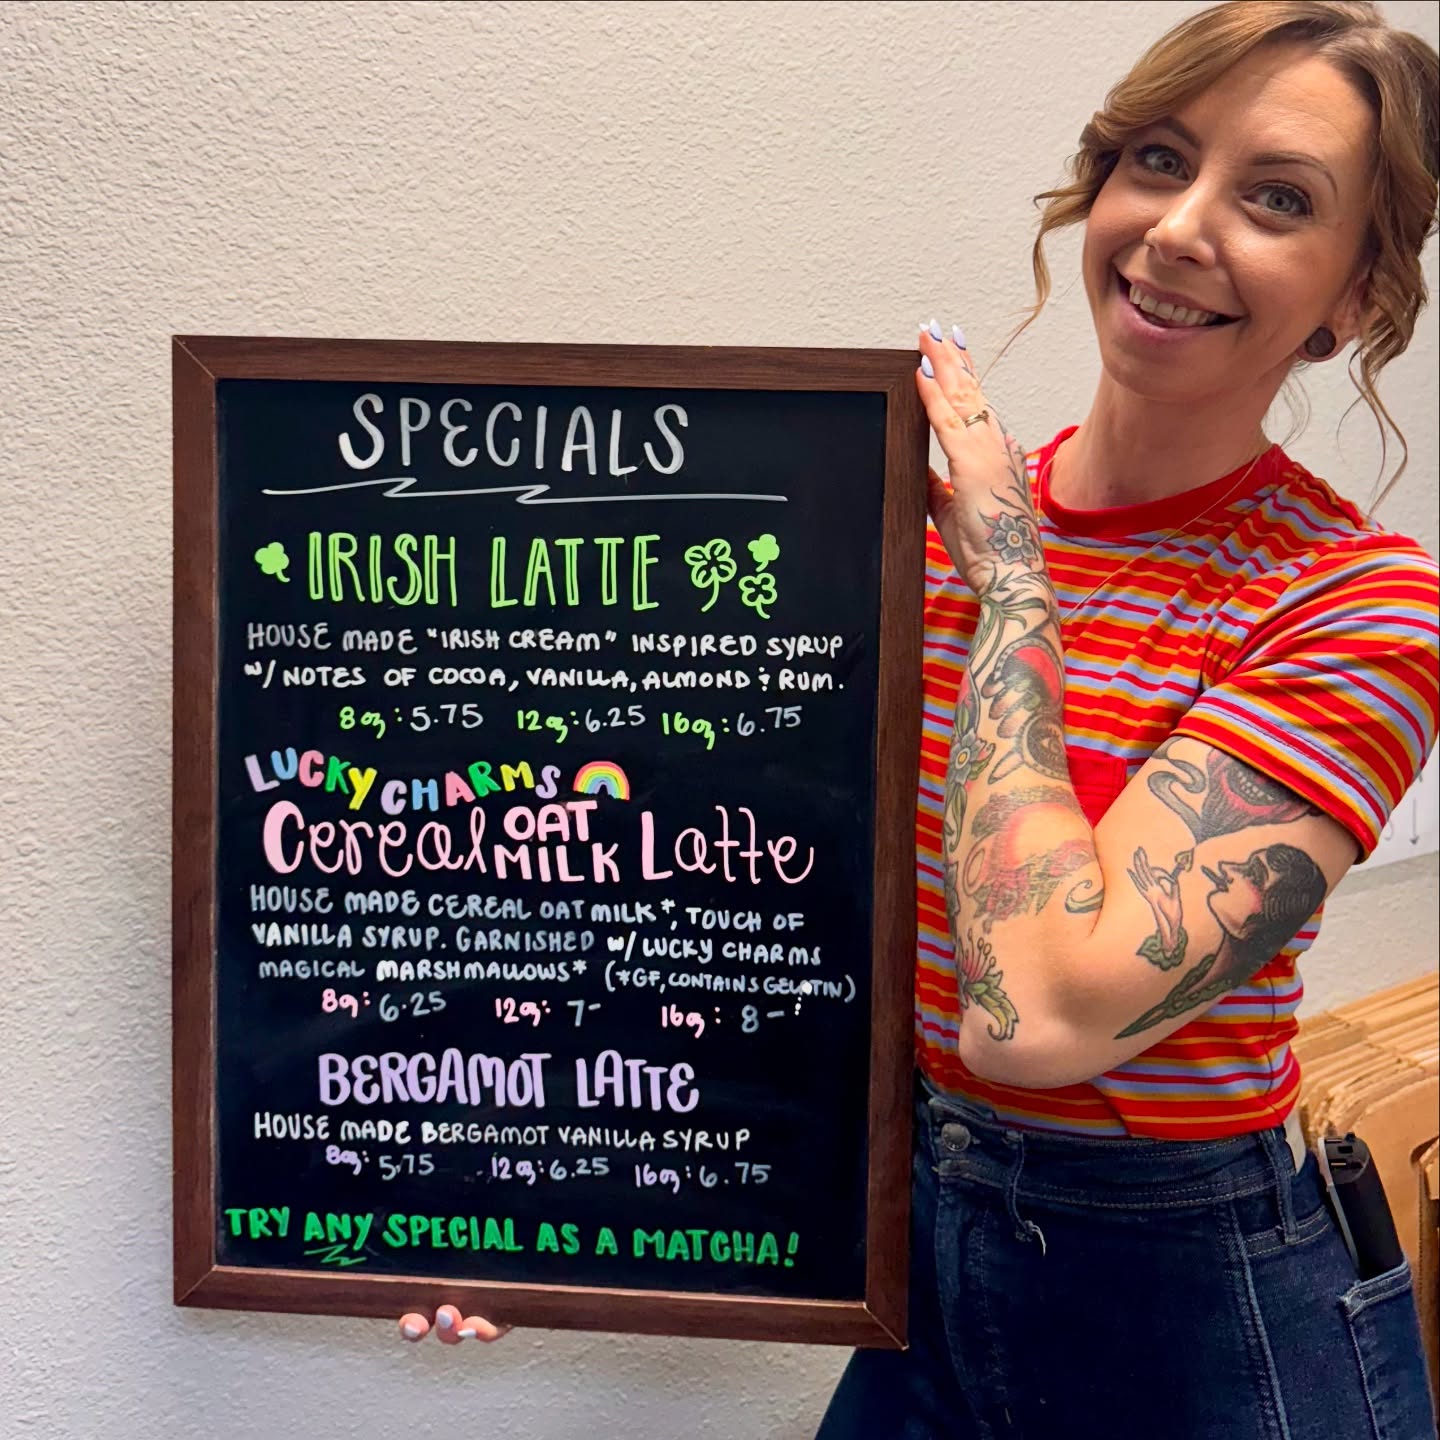 SPECIALS
IRISH LATTE
HOUSE MADE "IRISH CREAM" INSPIRED SYRUP
W/ NOTES OF COCOA, VANILLA, ALMOND & RUM.
8oz: 5.75 12oz: 6.25 16oz: 6.75
LUCKY CHARMS
Cereal OAT MILK Latte
HOUSE MADE CEREAL OAT MILK*, TOUCH OF
VANILLA SYRUP. GARNISHED W/ LUCKY CHARMS
MAGICAL MARSHMALLOWS* (*GF, CONTAINS GELATIN)
8oz: 6.25 12oz: 7- 16oz: 8-
BERGAMOT LATTE
HOUSE MADE BERGAMOT VANILLA SYRUP
8oz: 5.75 12oz: 6.25 16oz: 6.75
TRY ANY SPECIAL AS A MATCHA!